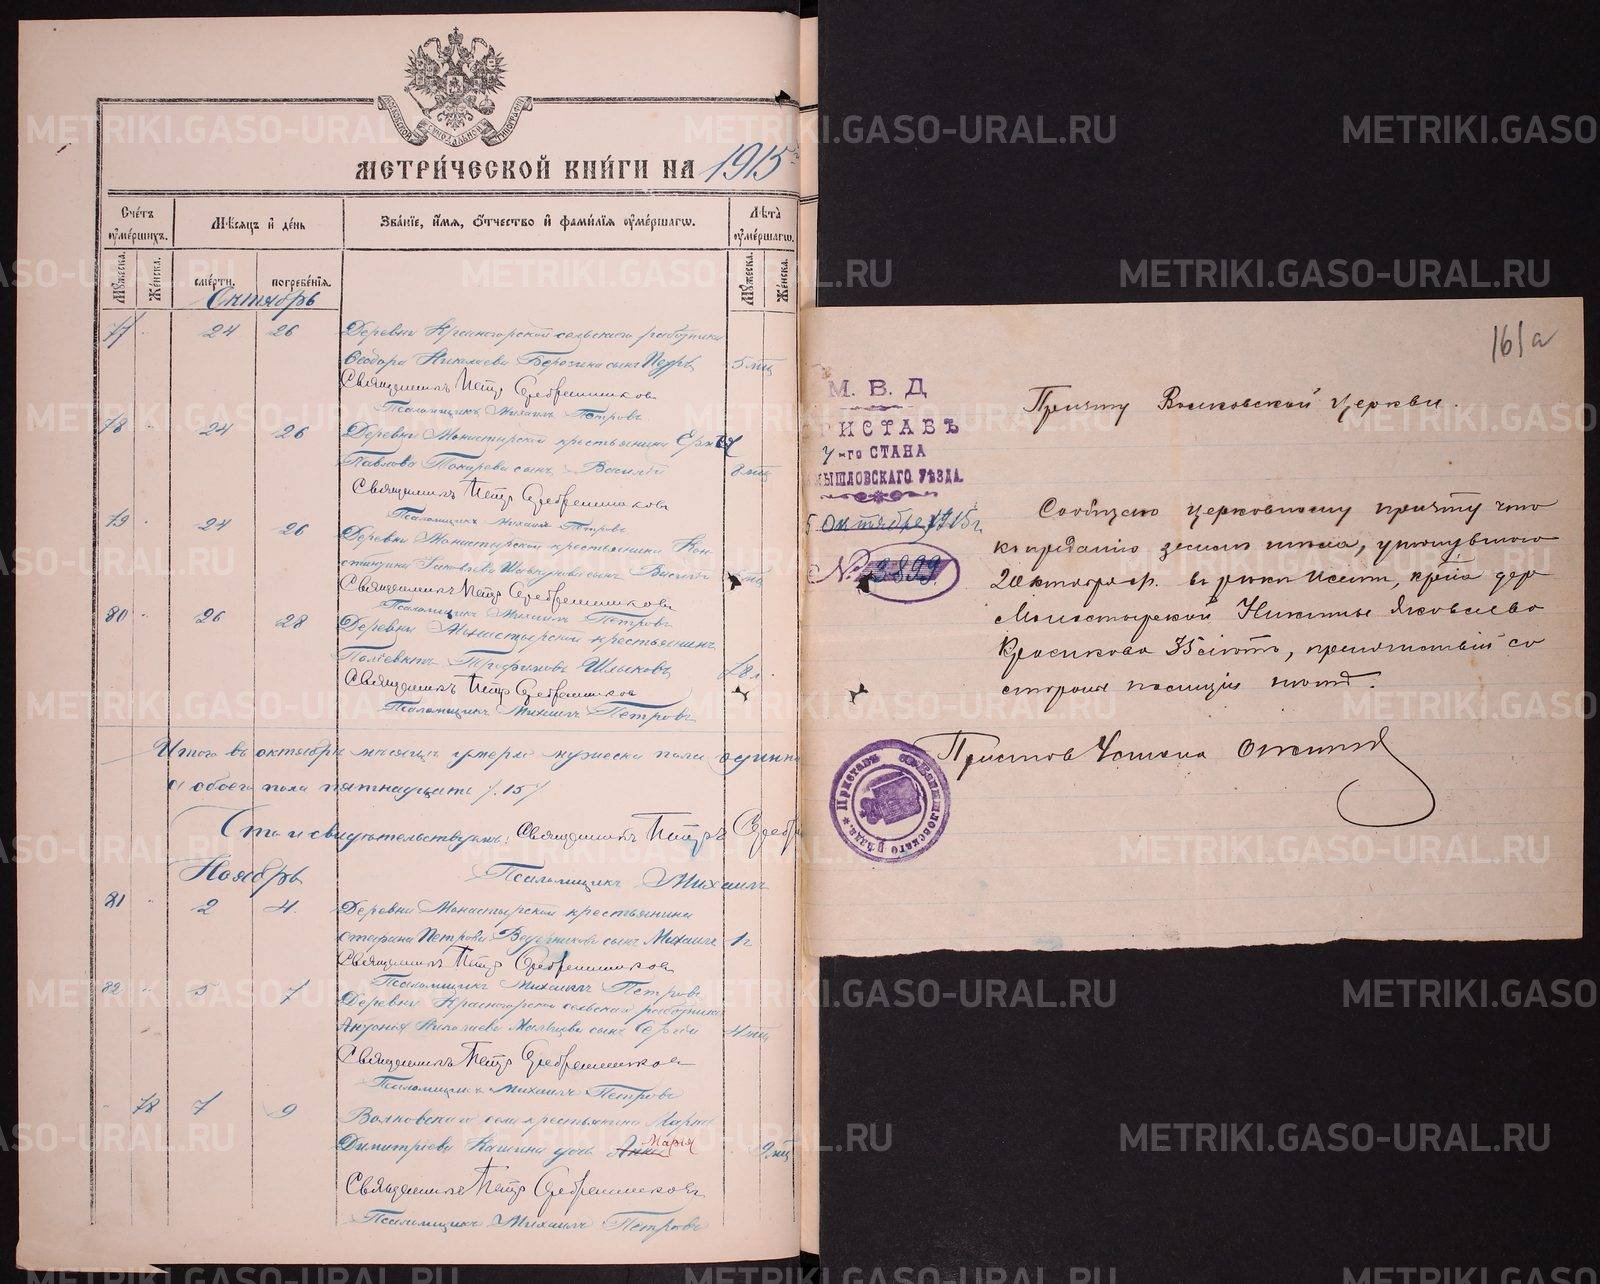 МЕТРИ́ЧЕСКОЙ КНИ́ГИ НА 1915
Сче́тъ ᲂу҆ме́ршихъ.
Мѣ́сѧцъ и҆ де́нь
Зва́нїе, и҆́мѧ, ѻ҆́тчество и҆ фами́лїѧ ᲂу҆ме́ршагѡ.
Лѣ́та ᲂу҆ме́ршагѡ.
Мꙋ́жеска.
Же́нска.
сме́рти.
погребе́нїѧ.
Мꙋ́жеска.
Же́нска.
Октябрь
77 24 26 Деревни Красногорской сельскаго работника
Ѳеодора Николаева Берозина сынъ Петръ 5 мц
Священникъ Петр Серебренниковъ
Псаломщикъ Михаилъ Петровъ
78 24 26 Деревни Монастырской крестьянина
Павлова Токарева сынъ Василій 8 мц
Священникъ Петр Серебренниковъ
Псаломщикъ Михаилъ Петровъ
79 24 26 Деревни Монастырской крестьянина Кон-
стантина Яковлева сынъ Василій
Священникъ Петр Серебренниковъ
Псаломщикъ Михаилъ Петровъ
80 26 28 Деревни Монастырской крестьянинъ
Шлыковъ 48 л.
Священникъ Петр Серебренниковъ
Псаломщикъ Михаилъ Петровъ
Итого въ октябрѣ мѣсяцѣ умерло мужеска пола
а обоего пола пятнадцать /15/
Что и свидѣтельствуемъ: Священникъ Петръ Серебр
Псаломщикъ Михаилъ
Ноябрь
81 2 4 Деревни Монастырской крестьянина
Стефана Петрова сынъ Михаилъ 1 г
Священникъ Петр Серебренниковъ
Псаломщикъ Михаилъ Петровъ
82 5 7 Деревни Красногорской сельскаго работника
Антонія Николаева Мальцева сынъ Сергій 4 мц
Священникъ Петр Серебренниковъ
Псаломщикъ Михаилъ Петровъ
78 7 9 Волковскаго села крестьянина Марка
Димитріева Кашина дочь Анна Марія 9 мц
Священникъ Петр Серебренниковъ
Псаломщикъ Михаилъ Петровъ
161а
М. В. Д.
РИСТАВЪ
4-го СТАНА
МЫШЛОВСКАГО УѢЗДА.
5 октября 1915 г.
№ 3899
Причту Волковской церкви.
Сообщаю церковному причту что
къ преданію землѣ тѣла, утонувшаго
2 октября с.г. въ рѣкѣ Исеть, кр-на дер
Монастырской Никиты Яковлева
Красикова 35 лѣтъ, препятствій со
стороны полиціи нѣтъ.
Приставъ 4 стана
METRIKI.GASO-URAL.RU